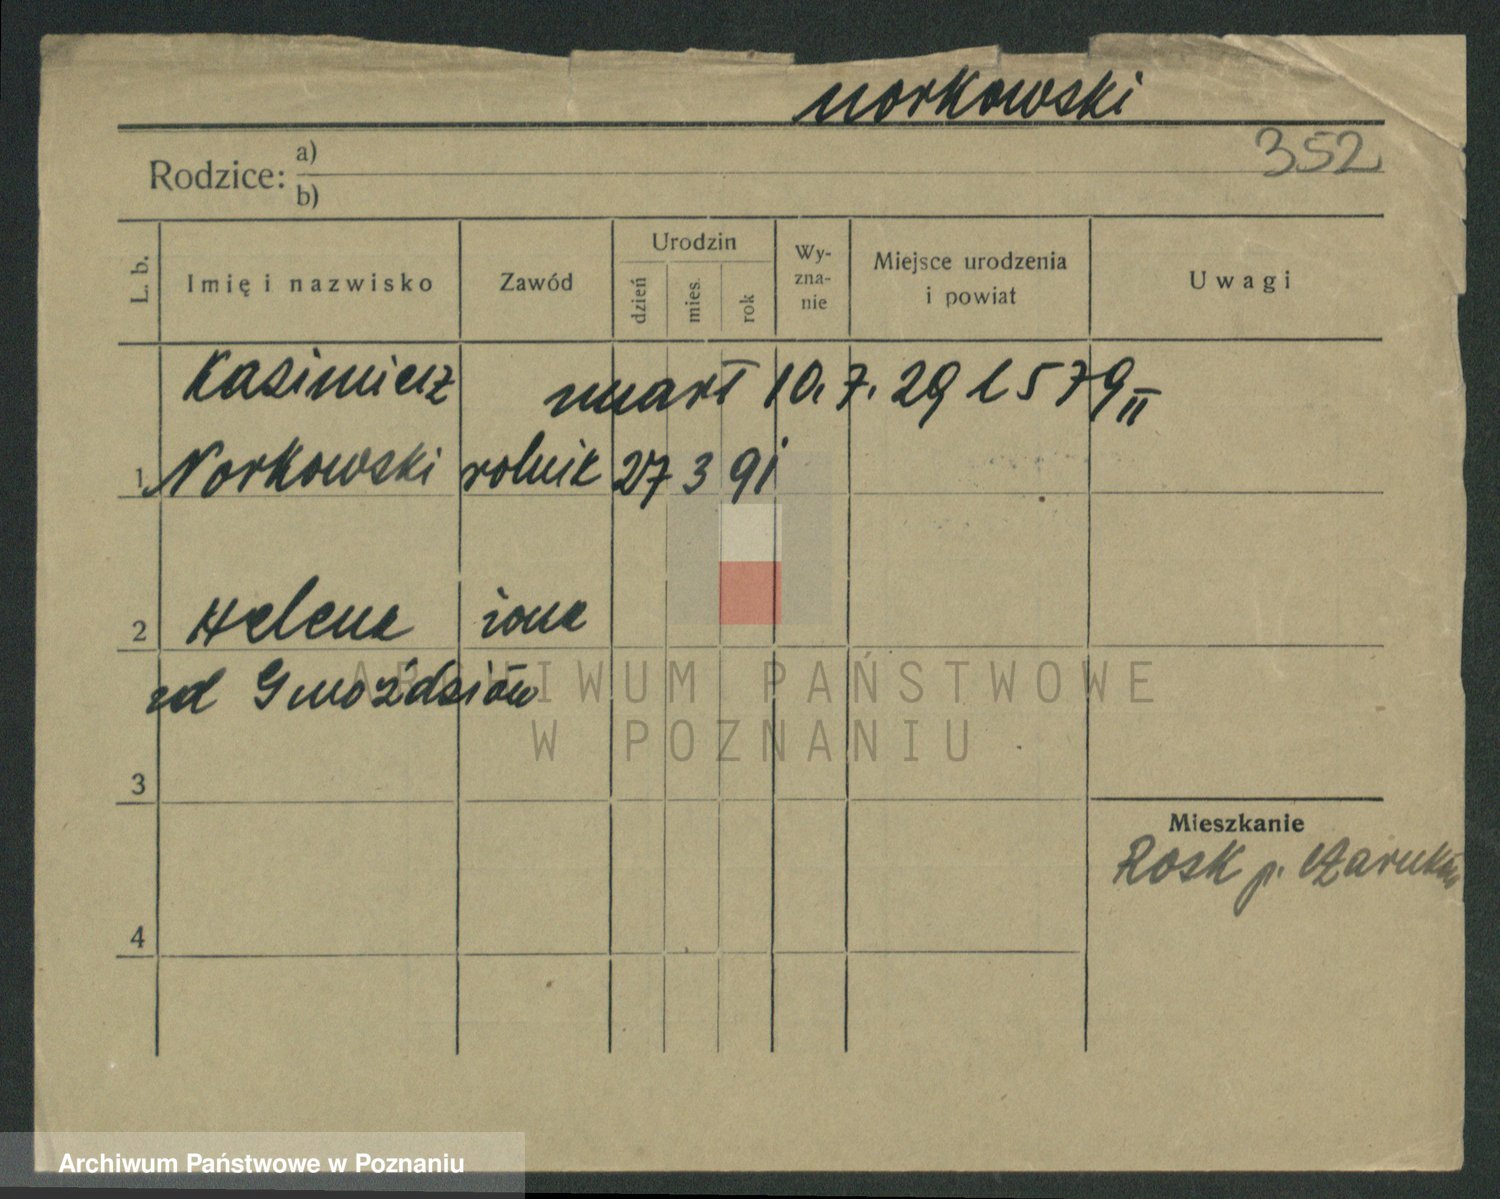 Norkowski
352
Rodzice: a)
b)
L. b.
Imię i nazwisko
Zawód
Urodzin
dzień
mies.
rok
Wy-
zna-
nie
Miejsce urodzenia
i powiat
Uwagi
Kazimierz zmarł 10.7.29 1579 II
1 Norkowski rolnik 27 3 91
2 Helena żona
zd Gwoździów
3
Mieszkanie
Rosk p.
4
ARCHIWUM PAŃSTWOWE
W POZNANIU
Archiwum Państwowe w Poznaniu